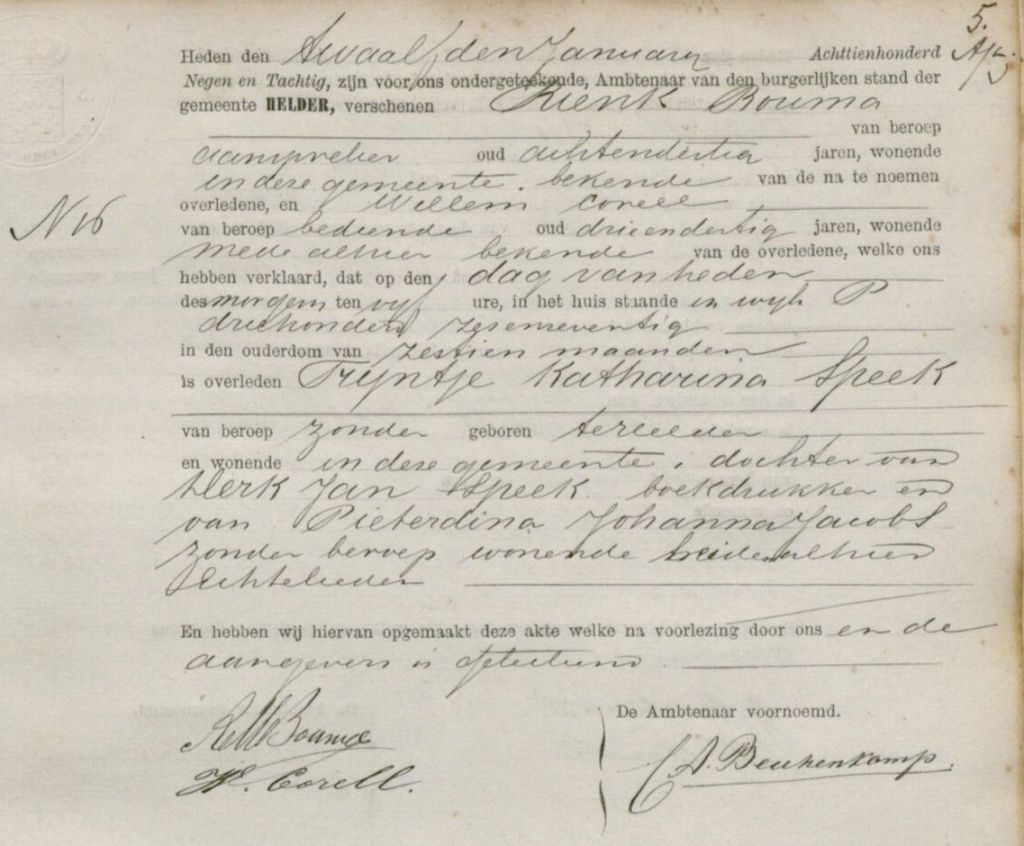 5.
Heden den Twaalfden January Achttienhonderd
Negen en Tachtig, zijn voor ons ondergeteekende, Ambtenaar van den burgerlijken stand der
gemeente HELDER, verschenen Rienk Bouma
van beroep
aanspreker oud achtendertig jaren, wonende
in deze gemeente, bekende van de na te noemen
overledene, en Willem Corell
No 16
van beroep bediende oud drieendertig jaren, wonende
mede alhier bekende van de overledene, welke ons
hebben verklaard, dat op den dag van heden
des morgens ten vyf ure, in het huis staande in wyk P
driehonderd zesenzeventig
in den ouderdom van zestien maanden
is overleden Tryntje Katharina Speek
van beroep zonder geboren
en wonende in deze gemeente, dochter van
Derk Jan Speek boekdrukker en
van Pieterdina Johanna Jacobs
zonder beroep wonende beiden alhier
Echtelieden
En hebben wij hiervan opgemaakt deze akte welke na voorlezing door ons en de
aangevers is geteekend
De Ambtenaar voornoemd.
Bouma
W. Corell.
Beukenkamp.